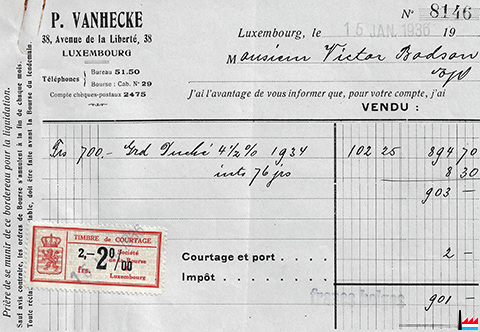 Nº 8146
P. VANHECKE
38, Avenue de la Liberté, 38
LUXEMBOURG
Téléphones { Bureau 51.50
Bourse : Cab. Nº 29
Compte chèques-postaux 2475
Luxembourg, le 15 JAN. 1936 19
Monsieur Victor Bodson
J'ai l'avantage de vous informer que, pour votre compte, j'ai
VENDU :
Frs 700,- Grd Duché 4½% 1934 102 25 894 70
ints 76 jrs 8 30
903 -
TIMBRE de COURTAGE
2,- 2 0/00
frs.
Société de la Bourse
Luxembourg
Courtage et port 2 -
Impôt
francs belges 901 -
Prière de se munir de ce bordereau pour la liquidation.
Sauf avis contraire, les ordres de Bourse s'annulent à la fin de chaque mois.
doit être faite avant la Bourse du lendemain.